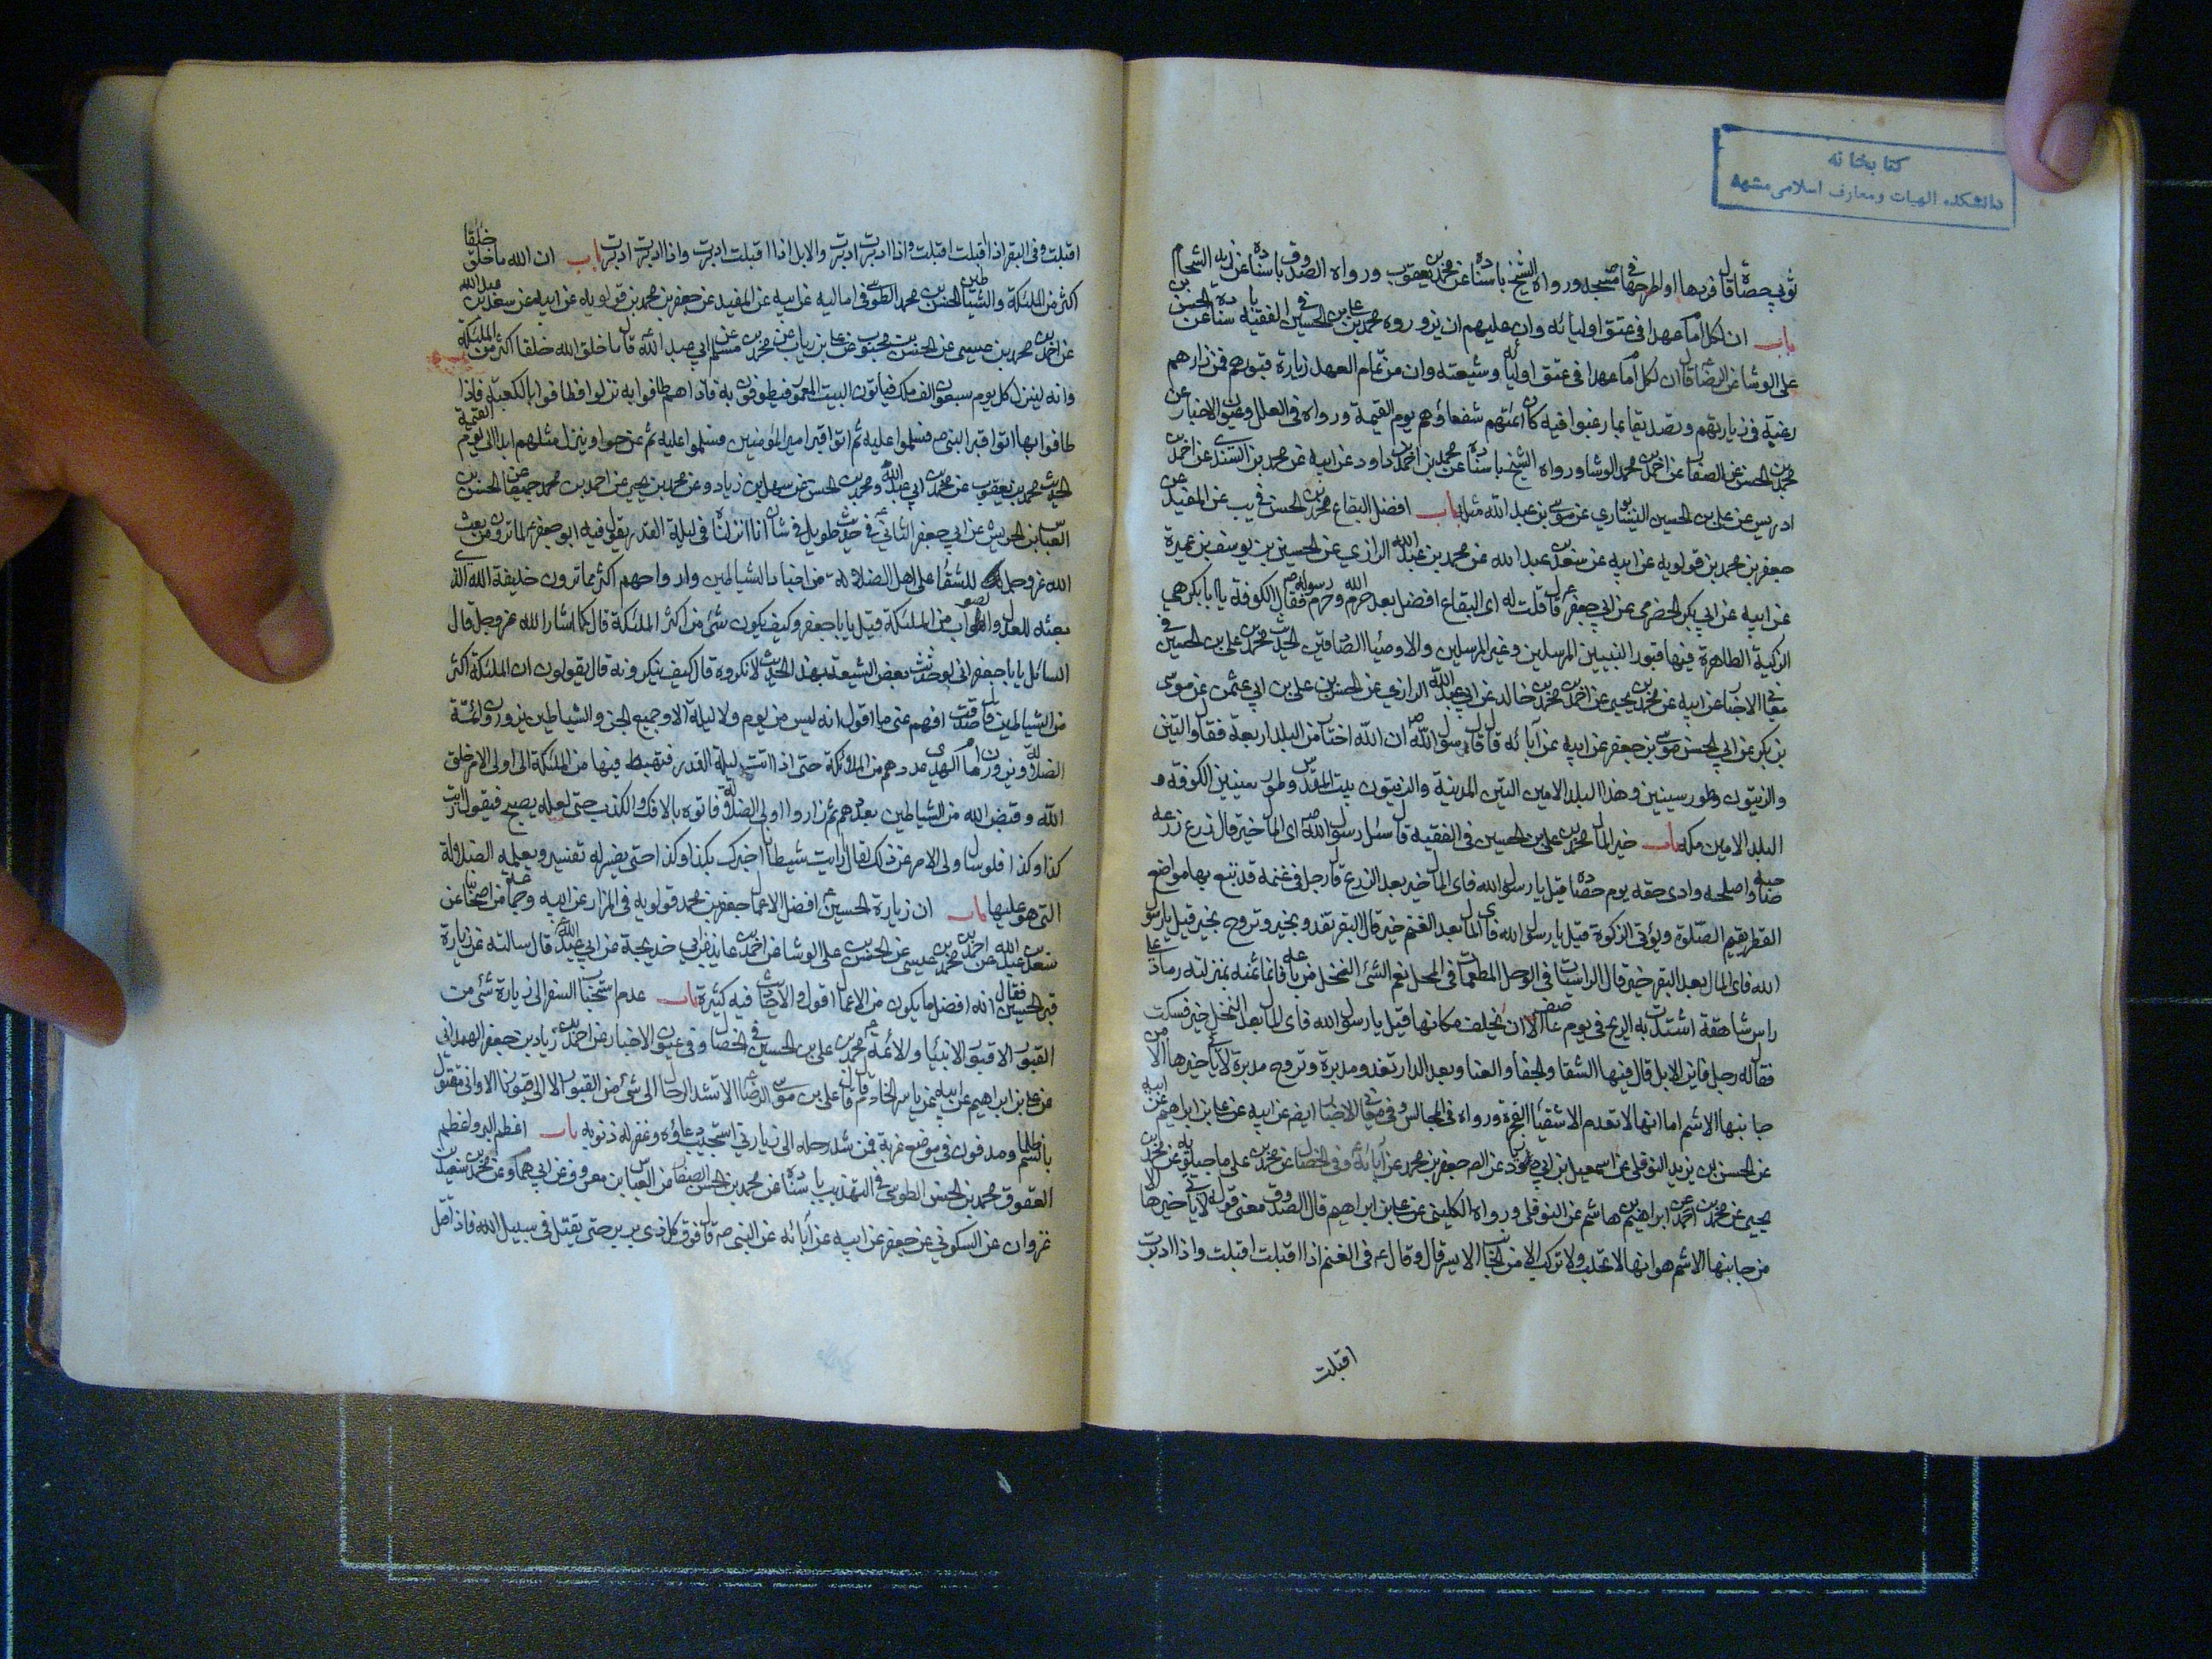 كتابخانه
دانشكده الهيات ومعارف اسلامى مشهد
ثوبي حصاة قال فردها او اطرحها في مسجد ورواه الشيخ باسناده عن محمد بن يعقوب ورواه الصدوق باسناده عن زيد الشحام
باب ان لكل امام عهدا في عتق اوليائه وان عليهم ان يزوروه محمد بن علي بن الحسين في الفقيه باسناده عن الحسن بن
علي الوشا عن الرضا قال ان لكل امام عهدا في عتق اوليائه وشيعته وان من تمام العهد زيارة قبورهم فمن زارهم
رغبة في زيارتهم وتصديقا بما رغبوا فيه كان ائمتهم شفعاؤهم يوم القيمة ورواه في العلل وعيون الاخبار عن
محمد بن الحسن عن الصفار عن احمد بن محمد الوشا ورواه الشيخ باسناده عن محمد بن احمد بن داود عن ابيه عن محمد بن السندي عن احمد بن
ادريس عن علي بن الحسين النيشابوري عن موسى بن عبد الله مثله باب افضل البقاع محمد بن الحسن في يب عن المفيد عن
جعفر بن محمد بن قولويه عن ابيه عن سعد بن عبد الله عن محمد بن عبد الله الرازي عن الحسين بن يوسف بن عميرة
عن ابيه عن ابي بكر الحضرمي عن ابي جعفر ع قال قلت له اي البقاع افضل بعد حرم الله وحرم رسوله ص فقال الكوفة يا ابا بكر هي
الزكية الطاهرة فيها قبور النبيين المرسلين وغير المرسلين والاوصيا الصادقين الحديث محمد بن علي بن الحسين في
معاني الاخبار عن ابيه عن محمد بن يحيى عن احمد بن محمد بن خالد عن ابي عبد الله الرازي عن الحسن بن علي بن ابي عثمن عن موسى
بن بكر عن ابي الحسن موسى بن جعفر عن ابيه عن آبائه قال قال رسول الله ص ان الله اختار من البلد اربعة فقال والتين
والزيتون وطور سينين وهذا البلد الامين التين المدينة والزيتون بيت المقدس وطور سينين الكوفة و
البلد الامين مكة باب خير المال محمد بن علي بن الحسين في الفقيه قال سئل رسول الله ص اي المال خير قال زرع زرعه
صاحبه واصلحه وادى حقه يوم حصاده قيل يا رسول الله فاي المال خير بعد الزرع قال رجل في غنمه قد تبع بها مواضع
القطر يقيم الصلوة ويؤتي الزكوة قيل يا رسول الله فاي المال بعد الغنم خير قال البقر تغدو بخير وتروح بخير قيل يا رسول
الله فاي المال بعد البقر خير قال الراسيات في الوحل المطعمات في المحل نعم الشئ النخل من باعه فانما ثمنه بمنزلة رماد على
راس شاهقة اشتدت به الريح في يوم عاصف الا ان يخلف مكانها قيل يا رسول الله فاي المال بعد النخل خير فسكت
فقال له رجل فاين الابل قال فيها الشقا والجفا والعنا وبعد الدار تغدو مدبرة وتروح مدبرة لا ياتي خيرها الا من
جانبها الاشم اما انها لا تعدم الاشقياء الفجرة ورواه في المجالس وفي معاني الاخبار ايضا عن ابيه عن علي بن ابراهيم عن ابيه
عن الحسن بن يزيد النوفلي عن اسمعيل بن ابي زياد عن جعفر بن محمد عن آبائه ع وفي الخصال عن محمد بن علي ماجيلويه عن محمد بن
يحيى عن محمد بن احمد عن ابراهيم بن هاشم عن النوفلي ورواه الكليني عن علي بن ابراهيم قال الصدوق معنى قوله لا ياتي خيرها الا
من جانبها الاشم هو انها لا تحلب ولا تركب الا من الجانب الايسر قال وقال ع في الغنم اذا اقبلت اقبلت واذا ادبرت
اقبلت
اقبلت وفي البقر اذا اقبلت اقبلت واذا ادبرت ادبرت والابل اذا اقبلت ادبرت واذا ادبرت ادبرت باب ان الله ما خلق خلقا
اكثر من الملئكة والشياطين الحسن بن محمد الطوسي في اماليه عن ابيه عن المفيد عن جعفر بن محمد بن قولويه عن ابيه عن سعد بن عبد الله
عن احمد بن محمد بن عيسى عن الحسن بن محبوب عن علي بن رياب عن محمد بن مسلم عن ابي عبد الله قال ما خلق الله خلقا اكثر من الملئكة
وانه لينزل كل يوم سبعون الف ملك فياتون البيت المعمور فيطوفون به فاذا هم طافوا به نزلوا فطافوا بالكعبة فاذا
طافوا بها اتوا قبر النبي ص فسلموا عليه ثم اتوا قبر امير المؤمنين فسلموا عليه ثم عرجوا وينزل مثلهم ابدا الى يوم القيمة
الحديث محمد بن يعقوب عن محمد بن ابي عبد الله ومحمد بن الحسن عن سهل بن زياد وعن محمد بن يحيى عن احمد بن محمد جميعا عن الحسن بن
العباس بن الحريش عن ابي جعفر الثاني ع في حديث طويل في شان انا انزلناه في ليلة القدر يقول فيه ابو جعفر ع لما ترون من بعث
الله عز وجل للشقاء على اهل الضلالة من اجناد الشياطين وارواحهم اكثر مما ترون خليفة الله الذي
بعثه للعدل والصواب من الملئكة قيل يا ابا جعفر وكيف يكون شئ من اكثر الملئكة قال كما شاء الله عز وجل قال
السائل يا ابا جعفر اني لو حدثت بعض الشيعة بهذا الحديث لانكروه قال كيف ينكرونه قال يقولون ان الملئكة اكثر
من الشياطين قال صدقت افهم عني ما اقول انه ليس من يوم ولا ليلة الا وجميع الجن والشياطين يزورون ائمة
الضلالة ويزور امام الهدى عددهم من الملائكة حتى اذا اتت ليلة القدر فتهبط فيها من الملئكة الى اولي الامر خلق
الله وقيض الله من الشياطين بعددهم ثم زاروا اولي الضلالة فاتوه بالافك والكذب حتى لعله يصبح فيقول رايت
كذا وكذا فلو سال ولي الامر عن ذلك لقال رايت شيطانا اخبرك بكذا وكذا حتى يفسر له تفسير ويعلمه الضلالة
التي هو عليها باب ان زيارة الحسين ع افضل الاعمال جعفر بن محمد قولويه في المزار عن ابيه وجماعة من اصحابنا عن
سعد بن عبد الله عن احمد بن محمد بن عيسى عن الحسن بن علي الوشا عن احمد بن عايذ عن ابي خديجة عن ابي عبد الله ع قال سالته عن زيارة
قبر الحسين فقال انه افضل ما يكون من الاعمال اقول والاحاديث فيه كثيرة باب عدم استحباب السفر الى زيارة شئ من
القبور الا قبور الانبياء والائمة ع محمد بن علي بن الحسين في الخصال وفي عيون الاخبار عن احمد بن زياد بن جعفر الهمداني
عن علي بن ابراهيم عن ابيه عن ياسر الخادم قال قال علي بن موسى الرضا ع لا تشد الرحال الى شئ من القبور الا الى قبورنا الا واني مقتول
بالسم ظلما ومدفون في موضع غربة فمن شد رحله الى زيارتي استجيب دعاؤه وغفر له ذنوبه باب اعظم البر واعظم
العقوق محمد بن الحسن الطوسي في التهذيب باسناده عن محمد بن الحسن الصفار عن العباس بن معروف عن ابي همام عن محمد بن سعيد بن
غزوان عن السكوني عن جعفر عن ابيه عن آبائه عن النبي ص قال فوق كل ذي بر بر حتى يقتل في سبيل الله فاذا قتل